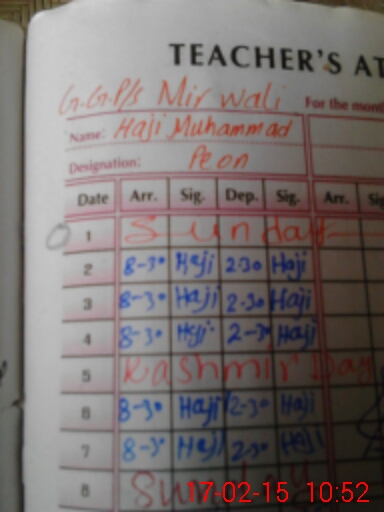 TEACHER'S AT
G.G.P/s Mir wali
For the mon
Name: Haji Muhammad
Designation: Peon
Date Arr. Sig. Dep. Sig. Arr. Sig
1 Sunday
2 8-30 Haji 2.30 Haji
3 8-30 Haji 2.30 Haji
4 8-30 Haji 2-30 Haji
5 Kashmir Day
6 8-30 Haji 2-30 Haji
7 8-30 Haji 2-30 Haji
8 Sunday
17-02-15 10:52